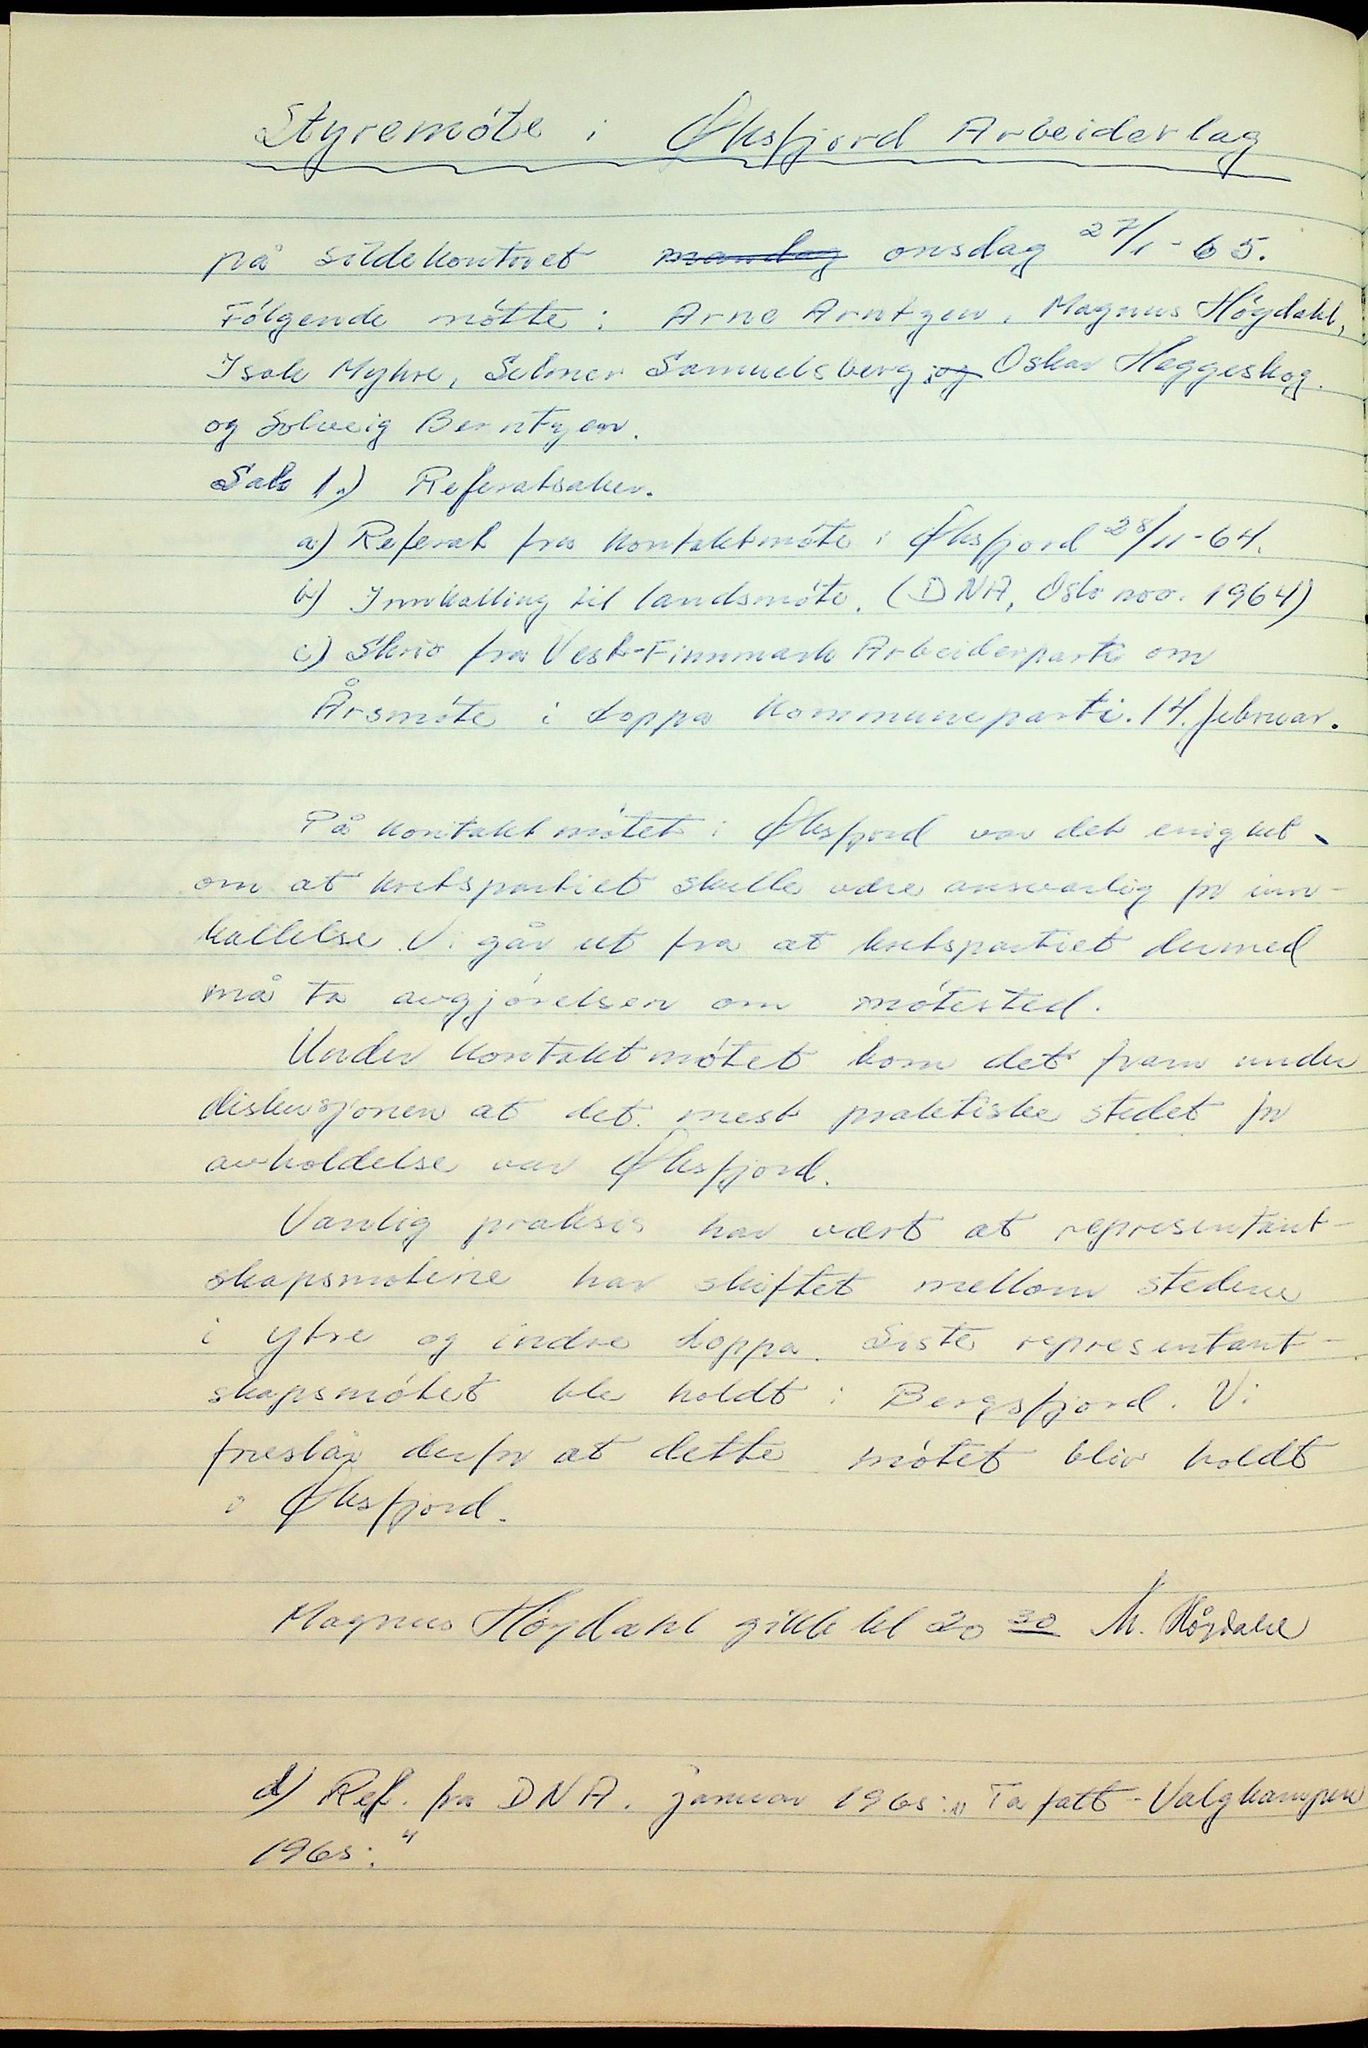 Styremöte i Øksfjord Arbeiderlag
på sildekontoret mandag onsdag 27/1-65.
Følgende møtte: Arne Arntzen, Magnus Høgdahl,
Isak Myhre, Selmer Samuelsberg, og Oskar Heggeskog.
og Solveig Berntzen.
Sak 1.) Referatsaker.
a) Referat fra kontaktmøte i Øksfjord 28/11-64.
b) Innkalling til landsmøte. (DNA, Oslo nov. 1964)
c) Skriv fra Vest-Finnmark Arbeiderparti om
Årsmøte i Loppa Kommuneparti. 14. februar.
På kontaktmøtet i Øksfjord var det enighet
om at kretspartiet skulle være ansvarlig for inn-
kallelse. Vi går ut fra at kretspartiet dermed
må ta avgjørelsen om møtested.
Under kontaktmøtet kom det fram under
diskusjonen at det mest praktiske stedet for
avholdelse var Øksfjord.
Vanlig praksis har vært at representant-
skapsmøtene har skiftet mellom stedene
i ytre og indre Loppa. Siste representant-
skapsmøtet ble holdt i Bergsfjord. Vi
foreslår derfor at dette møtet blir holdt
i Øksfjord.
Magnus Høgdahl gikk kl 20 30 M. Høgdahl
d) Ref. fra DNA. januar 1965: "Ta fatt - Valgkampen
1965."